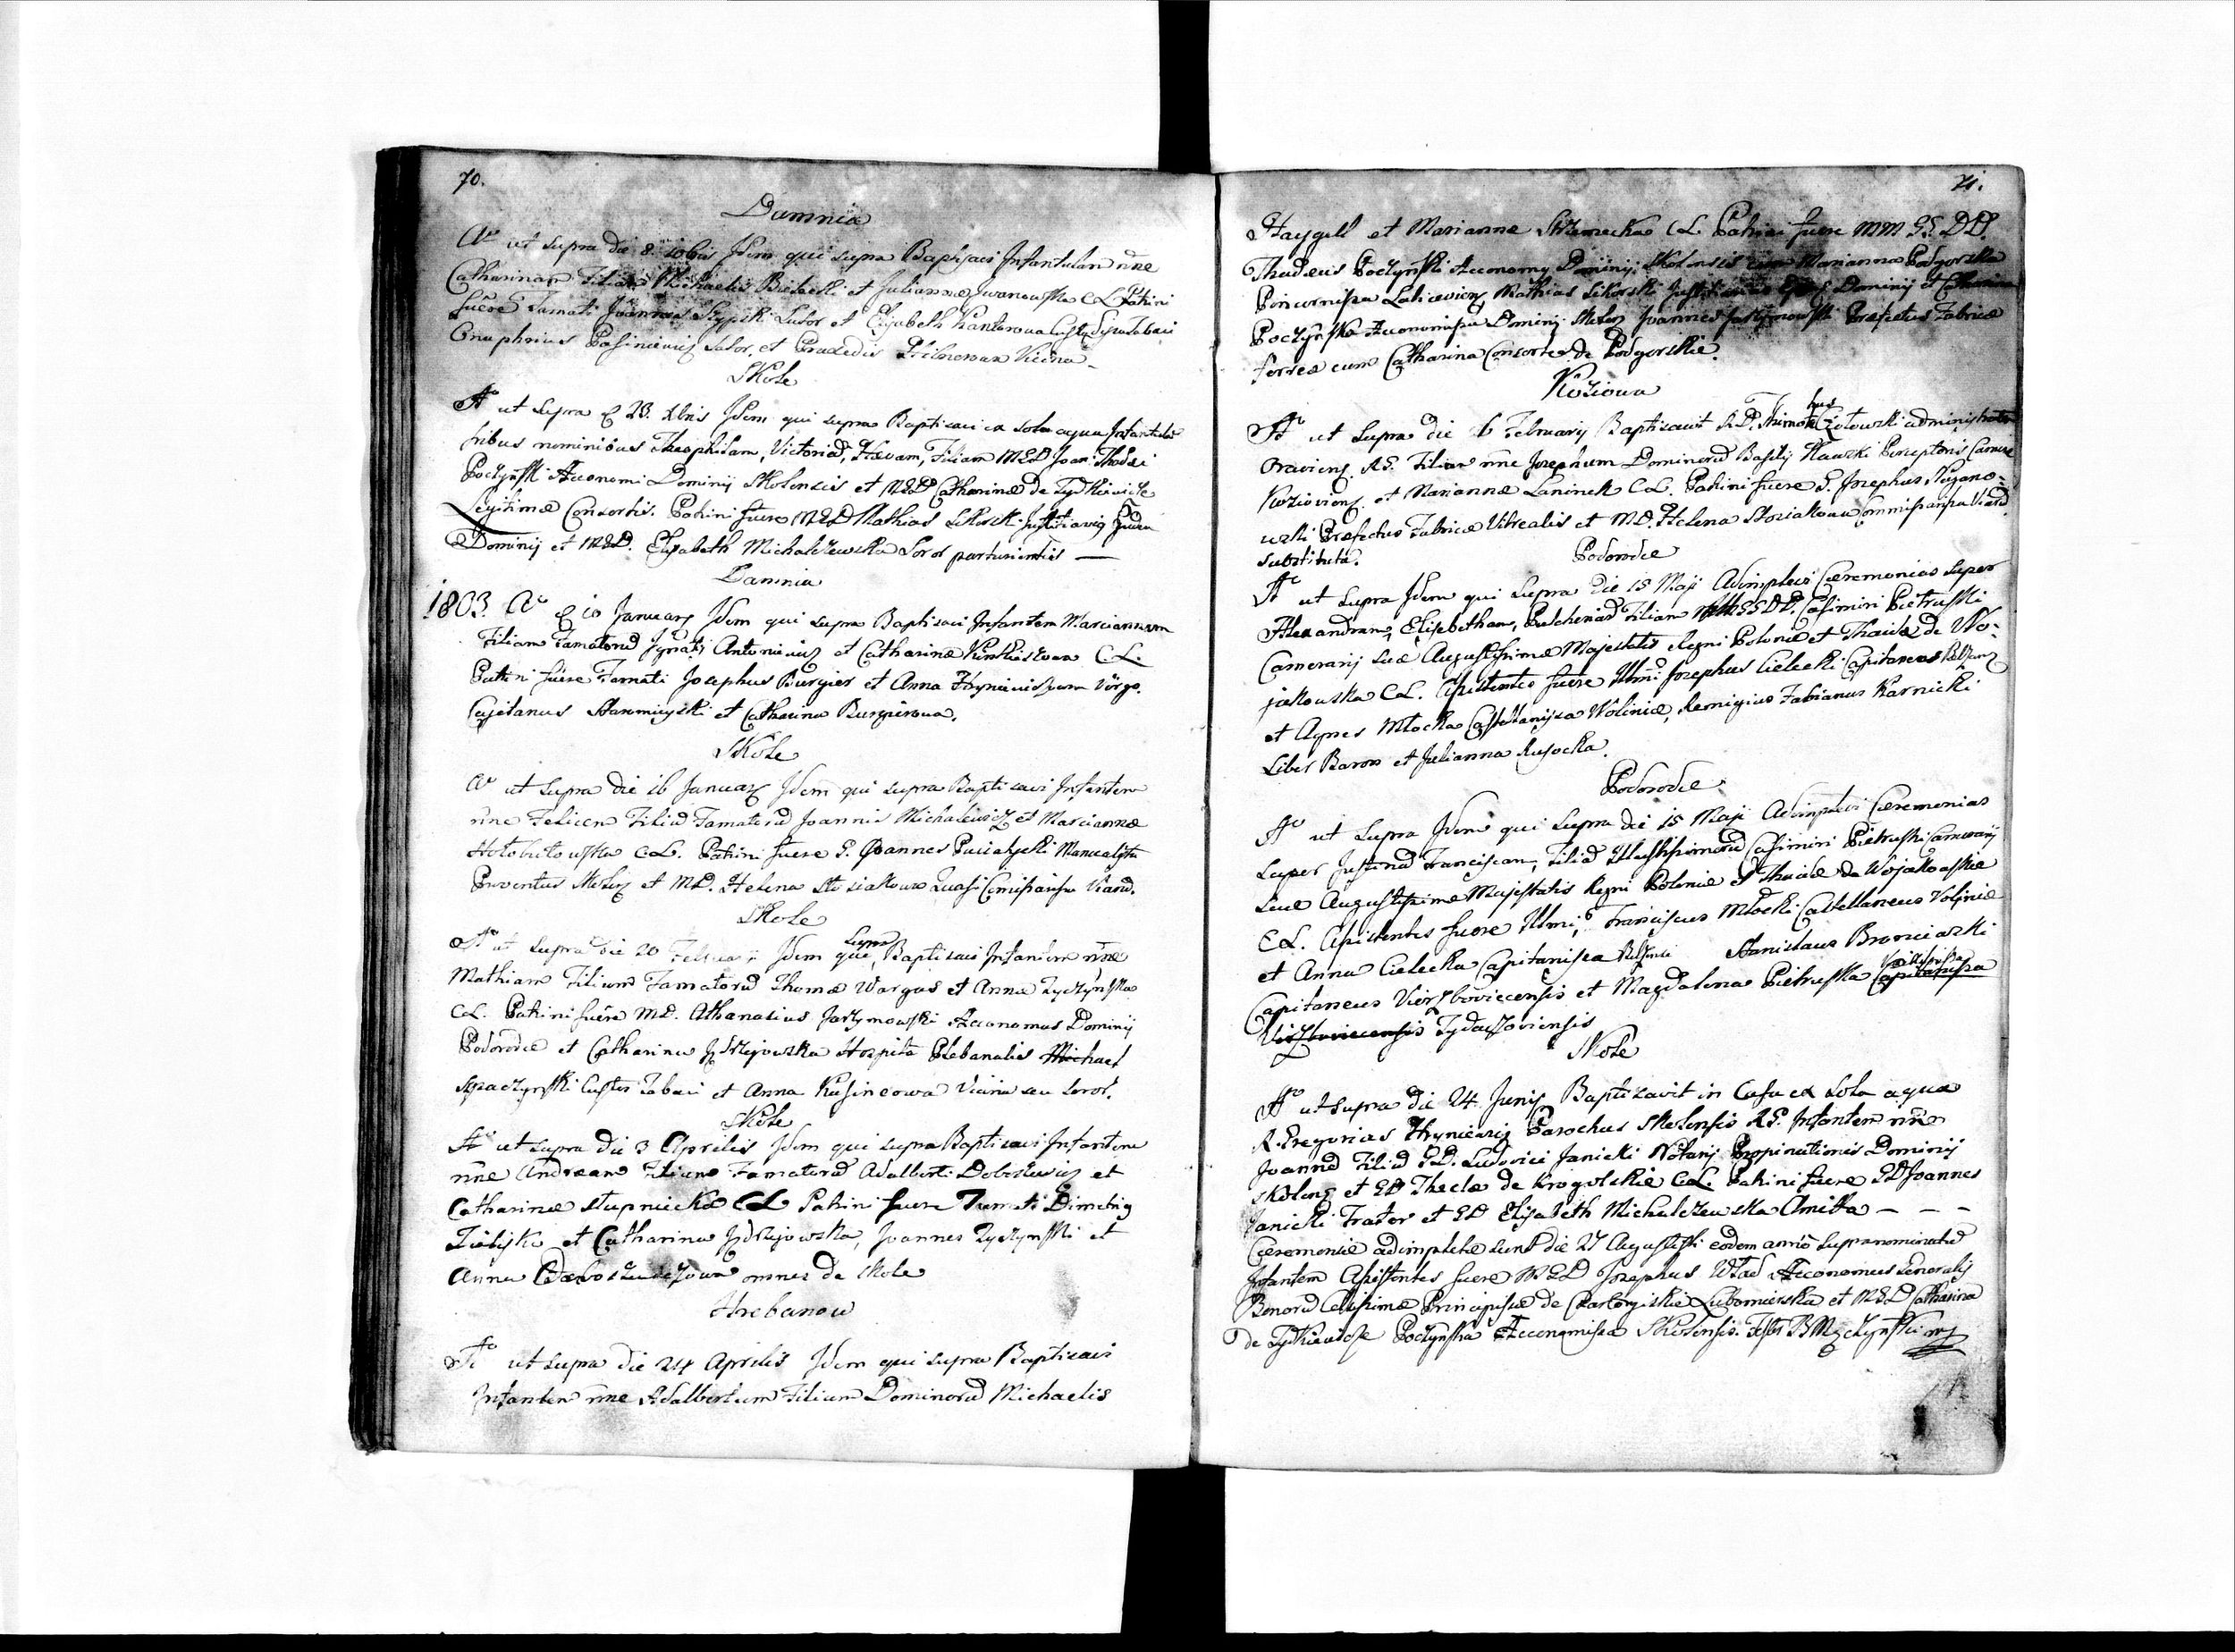 70.
Damnia
Ao ut supra die 8. 10bris Idem qui supra Baptisavi Infantulam nne
Catharinam Filiam Michaelis Bielecki et Julianna Iwanowska CL Patrini
fuere Famati Joannes Skypski Sutor et Elisabeth Kantorowa
Onuphrius Pasiniewicz Sutor, et Praxedis Vicina
Skole
Ao ut supra 23. Xbris Idem qui supra Baptisavi ex sola aqua Infantulam
tribus nominibus Theophilam, Victoriam, Haevam, Filiam MGD Joan: Thadei
Poczynski Aeconomi Dominij Skolensis et MGD Catharinae de Tydkiewicze
Legitimae Consortis. Patrini fuere MGD Mathias Sikorski Justitiarius
Dominij et MGD. Elisabeth Michalczewska Soror parturientis —
Damnia
1803. Ao 10 January Idem qui supra Baptisavi Infantem Mariannam
Filiam Famatorum Ignatij Antoniewicz et Catharinae CL.
Patrini fuere Famati Josephus Burgier et Anna Hryniewiczowa Virgo.
Cajetanus Staromieyski et Catharina Burgierowa.
Skole
Ao ut supra die 16 January Idem qui supra Baptisavi Infantem
nne Felicem Filium Famatorum Joannis Michalewicz et Mariannae
Hołobutowska CL. Patrini fuere G. Joannes Manualista
Proventus Skolen et MD. Helena Stosiakowa Quasi Comissarissa Viarum.
Skole
Ao ut supra die 20 February Idem qui supra Baptisavi Infantem nne
Mathiam Filium Famatorum Thomae Wargus et Annae Tyczynska
CL. Patrini fuere MD. Athanasius Jarzymowski Aeconomus Dominij
Podorodce et Catharina Jędrzejowska Hospita Plebanalis Michael
Spaczynski Custos Tabaci et Anna Kusineowa Vicina seu Soror.
Skole
Ao ut supra die 3 Aprilis Idem qui supra Baptisavi Infantem
nne Andream Filium Famatorum Adalberti Doboszewicz et
Catharinae Stupnicka CL Patrini fuere Famati Dimitrij
et Catharina Jędrzejowska, Joannes Tyczynski et
Anna omnes de Skole
Hrebanow
Ao ut supra die 24 Aprilis Idem qui supra Baptisavi
Infantem nne Adalbertum Filium Dominorum Michaelis
71.
Haygell et Marianna Strzemecka CL. Patrini fuere MM GG DD.
Thadeus Poczynski Aeconomy Dominij Skolensis cum Marianna Podgorska
Mathias Sikorski Justitiarius Dominij et Catharina
Poczynska Aeconomissa Dominij Skolen Joannes Jarzymowski Praefectus Fabricae
ferreae cum Catharina Consorte de Podgorskie.
Koziowa
Ao ut supra die 6 February Baptisavit R.D. Thimotheus Ziołowski administrator
Oraviens. RG. Filium nne Josephum Dominorum Basilij Hawski Perceptoris Camerae
Kozioviens et Mariannae Laninek CL. Patrini fuere G. Josephus
Praefectus Fabricae Vitrealis et MD. Helena Stosiakowa Commissarissa Viarum
substituta.
Podorodce
Ao ut supra Idem qui supra die 15 Maji Adimplevi Ceremonias super
Alexandram, Elisebetham, Pulcheriam Filiam MM GG DD. Casimiri Pietruski
Camerarij Suae Augustissimae Majestatis Regni Poloniae et Thaidae de Wo-
jakowska CL. Assistentes fuere Illmi Josephus Cielecki Capitaneus
et Agnes Młocka Castellanissa Woliniae, Remigius Fabianus Karnicki
Liber Baron et Julianna Rusocka.
Podorodce
Ao ut supra Idem qui supra die 15 Maji Adimplevi Ceremonias
super Justinam Franciscam, Filiam Illustrissimorum Casimiri Pietruski Camerarij
Suae Augustissimae Majestatis Regni Poloniae et Thaidae de Wojakowskie
CL. Assistentes fuere Illmi, Franciscus Młocki Castellaneus Voliniae
et Anna Cielecka Capitanissa Stanislaus Broniewski
Capitaneus et Magdalena Pietruska Capitanissa
Zydaczoviensis
Skole
Ao ut supra die 24 Junij Baptizavit in Casu ex Sola aqua
R. Gregorius Hryniewicz Parochus Skolensis RG. Infantem nne
Joannem Filium GD. Ludovici Janicki Notarij Propinationis Dominij
Skolens et GD Theclae de Krogolskie CL. Patrini fuere GD Joannes
Janicki Frater et GD Elisabeth Michalczewska Amitta — — —
Ceremoniae adimpletae sunt die 27 Augusti eodem anno supranominatum
Infantem Assistentes fuere MGD Josephus Wład Aeconomus Generalis
Bonorum Celsissimae Principissae de Czartoryskie Lubomierska et MGD Catharina
de Tydkiewicze Poczynska Aeconomissa Skolensis.